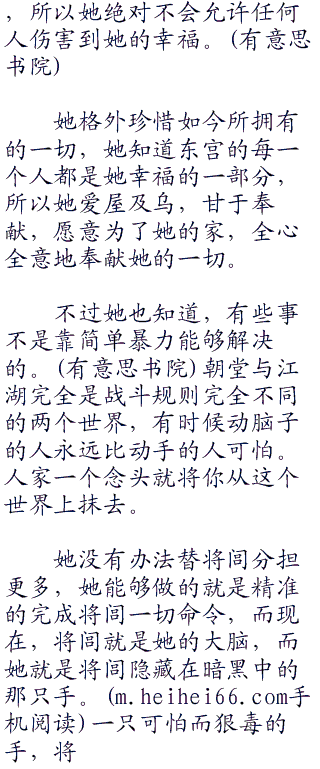 ，所以她绝对不会允许任何
人伤害到她的幸福。(有意思
书院)
她格外珍惜如今所拥有
的一切，她知道东宫的每一
个人都是她幸福的一部分，
所以她爱屋及乌，甘于奉
献，愿意为了她的家，全心
全意地奉献她的一切。
不过她也知道，有些事
不是靠简单暴力能够解决
的。(有意思书院)朝堂与江
湖完全是战斗规则完全不同
的两个世界，有时候动脑子
的人永远比动手的人可怕。
人家一个念头就将你从这个
世界上抹去。
她没有办法替将闾分担
更多，她能够做的就是精准
的完成将闾一切命令，而现
在，将闾就是她的大脑，而
她就是将闾隐藏在暗黑中的
那只手。(m.heihei66.com手
机阅读)一只可怕而狠毒的
手，将